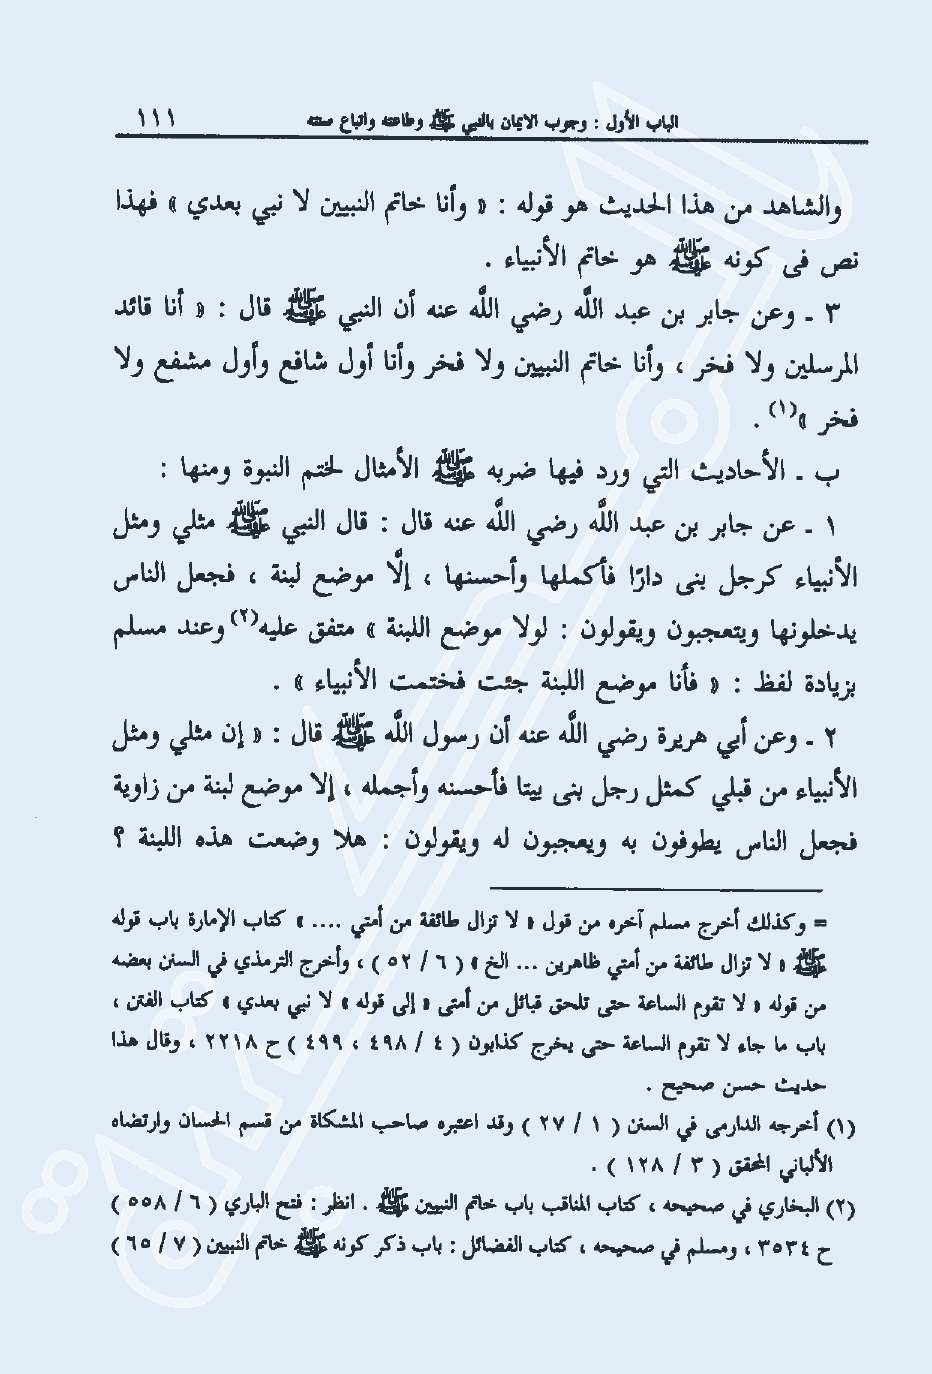 الباب الأول : وجوب الايمان بالنبي ﷺ وطاعته واتباع سنته ١١١
والشاهد من هذا الحديث هو قوله : « وأنا خاتم النبيين لا نبي بعدي » فهذا
نص فى كونه ﷺ هو خاتم الأنبياء .
٣ ـ وعن جابر بن عبد اللَّه رضي اللَّه عنه أن النبي ﷺ قال : « أنا قائد
المرسلين ولا فخر ، وأنا خاتم النبيين ولا فخر وأنا أول شافع وأول مشفع ولا
فخر »(١) .
ب ـ الأحاديث التي ورد فيها ضربه ﷺ الأمثال لختم النبوة ومنها :
١ ـ عن جابر بن عبد اللَّه رضي اللَّه عنه قال : قال النبي ﷺ مثلي ومثل
الأنبياء كرجل بنى دارًا فأكملها وأحسنها ، إلَّا موضع لبنة ، فجعل الناس
يدخلونها ويتعجبون ويقولون : لولا موضع اللبنة » متفق عليه(٢) وعند مسلم
بزيادة لفظ : « فأنا موضع اللبنة جئت فختمت الأنبياء » .
٢ ـ وعن أبي هريرة رضي اللَّه عنه أن رسول اللَّه ﷺ قال : « إن مثلي ومثل
الأنبياء من قبلي كمثل رجل بنى بيتا فأحسنه وأجمله ، إلا موضع لبنة من زاوية
فجعل الناس يطوفون به ويعجبون له ويقولون : هلا وضعت هذه اللبنة ؟
= وكذلك أخرج مسلم آخره من قول « لا تزال طائفة من أمتي .... » كتاب الإمارة باب قوله
ﷺ « لا تزال طائفة من أمتي ظاهرين ... الخ » ( ٦ / ٥٢ ) ، وأخرج الترمذي في السنن بعضه
من قوله « لا تقوم الساعة حتى تلحق قبائل من أمتى » إلى قوله « لا نبي بعدي » كتاب الفتن ،
باب ما جاء لا تقوم الساعة حتى يخرج كذابون ( ٤ / ٤٩٨ ، ٤٩٩ ) ح ٢٢١٨ ، وقال هذا
حديث حسن صحيح .
(١) أخرجه الدارمى في السنن ( ١ / ٢٧ ) وقد اعتبره صاحب المشكاة من قسم الحسان وارتضاه
الألباني المحقق ( ٣ / ١٢٨ ) .
(٢) البخاري في صحيحه ، كتاب المناقب باب خاتم النبيين ﷺ . انظر : فتح الباري ( ٦ / ٥٥٨ )
ح ٣٥٣٤ ، ومسلم في صحيحه ، كتاب الفضائل : باب ذكر كونه ﷺ خاتم النبيين ( ٧ / ٦٥ )